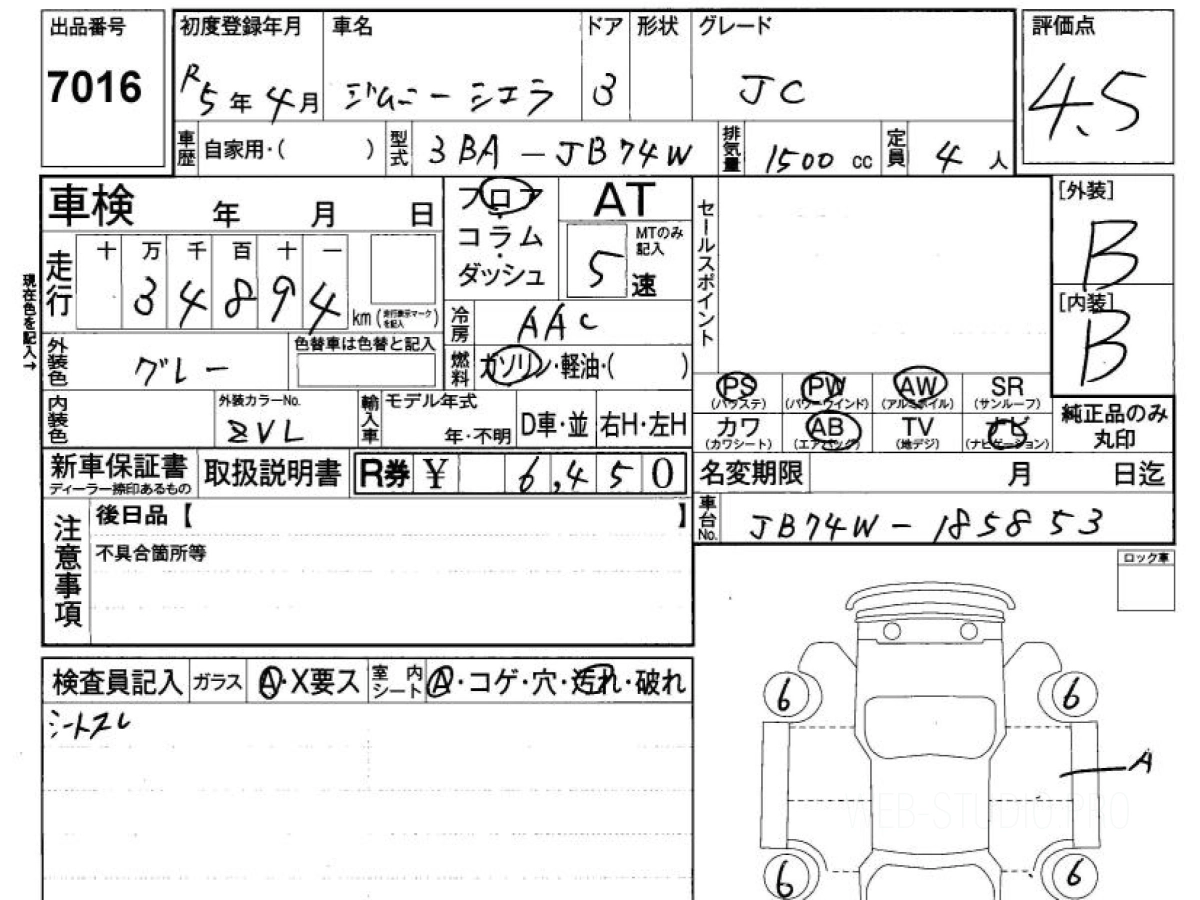 出品番号 初度登録年月 車名 ドア 形状 グレード 評価点
7016 R5年4月 ジムニーシエラ 3 JC 4.5
車歴 自家用・( ) 型式 3BA-JB74W 排気量 1500 cc 定員 4 人
車検 年 月 日 フロア AT セールスポイント [外装]
コラム MTのみ記入 B
走行 十 万 千 百 十 一 ダッシュ 5 速
現在色を記入→ 34894 km (走行表示マークを記入) 冷房 AAC [内装]
外装色 グレー 色替車は色替と記入 燃料 ガソリン・軽油・( ) B
PS PW AW SR
(パワステ) (パワーウインド) (アルミホイル) (サンルーフ)
内装色 外装カラーNo. ZVL 輸入車 モデル年式 年・不明 D車・並 右H・左H カワ AB TV ナビ 純正品のみ
(カワシート) (エアバック) (地デジ) (ナビゲーション) 丸印
新車保証書 取扱説明書 R券 ¥ 6,450 名変期限 月 日迄
ディーラー捺印あるもの
注意事項 後日品【 】 車台No. JB74W-185853
不具合箇所等 ロック車
検査員記入 ガラス A・X要ス 室内シート A・コゲ・穴・汚れ・破れ
シートスレ
6 6
A
WEB-STUDIO.PRO
6 6